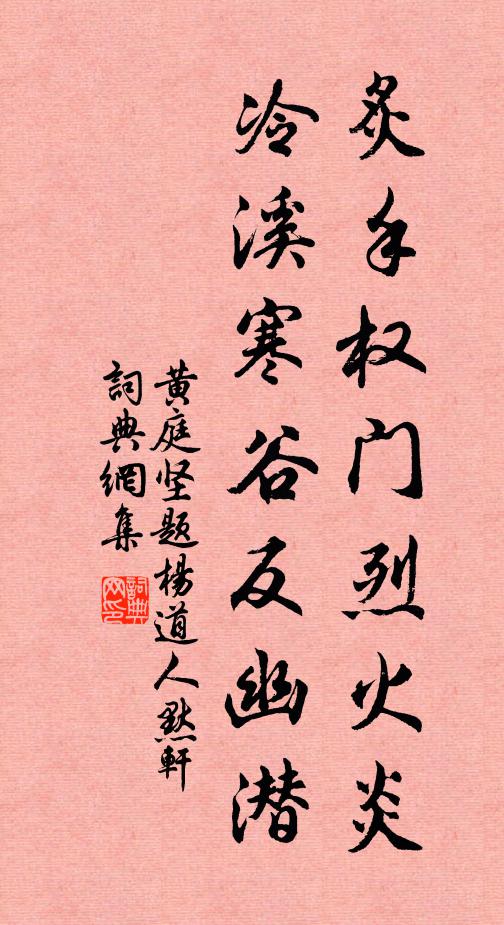 炙手权门烈火炎
冷溪寒谷反幽潜
黄庭坚题杨道人默轩
詞典網集
詞典网印